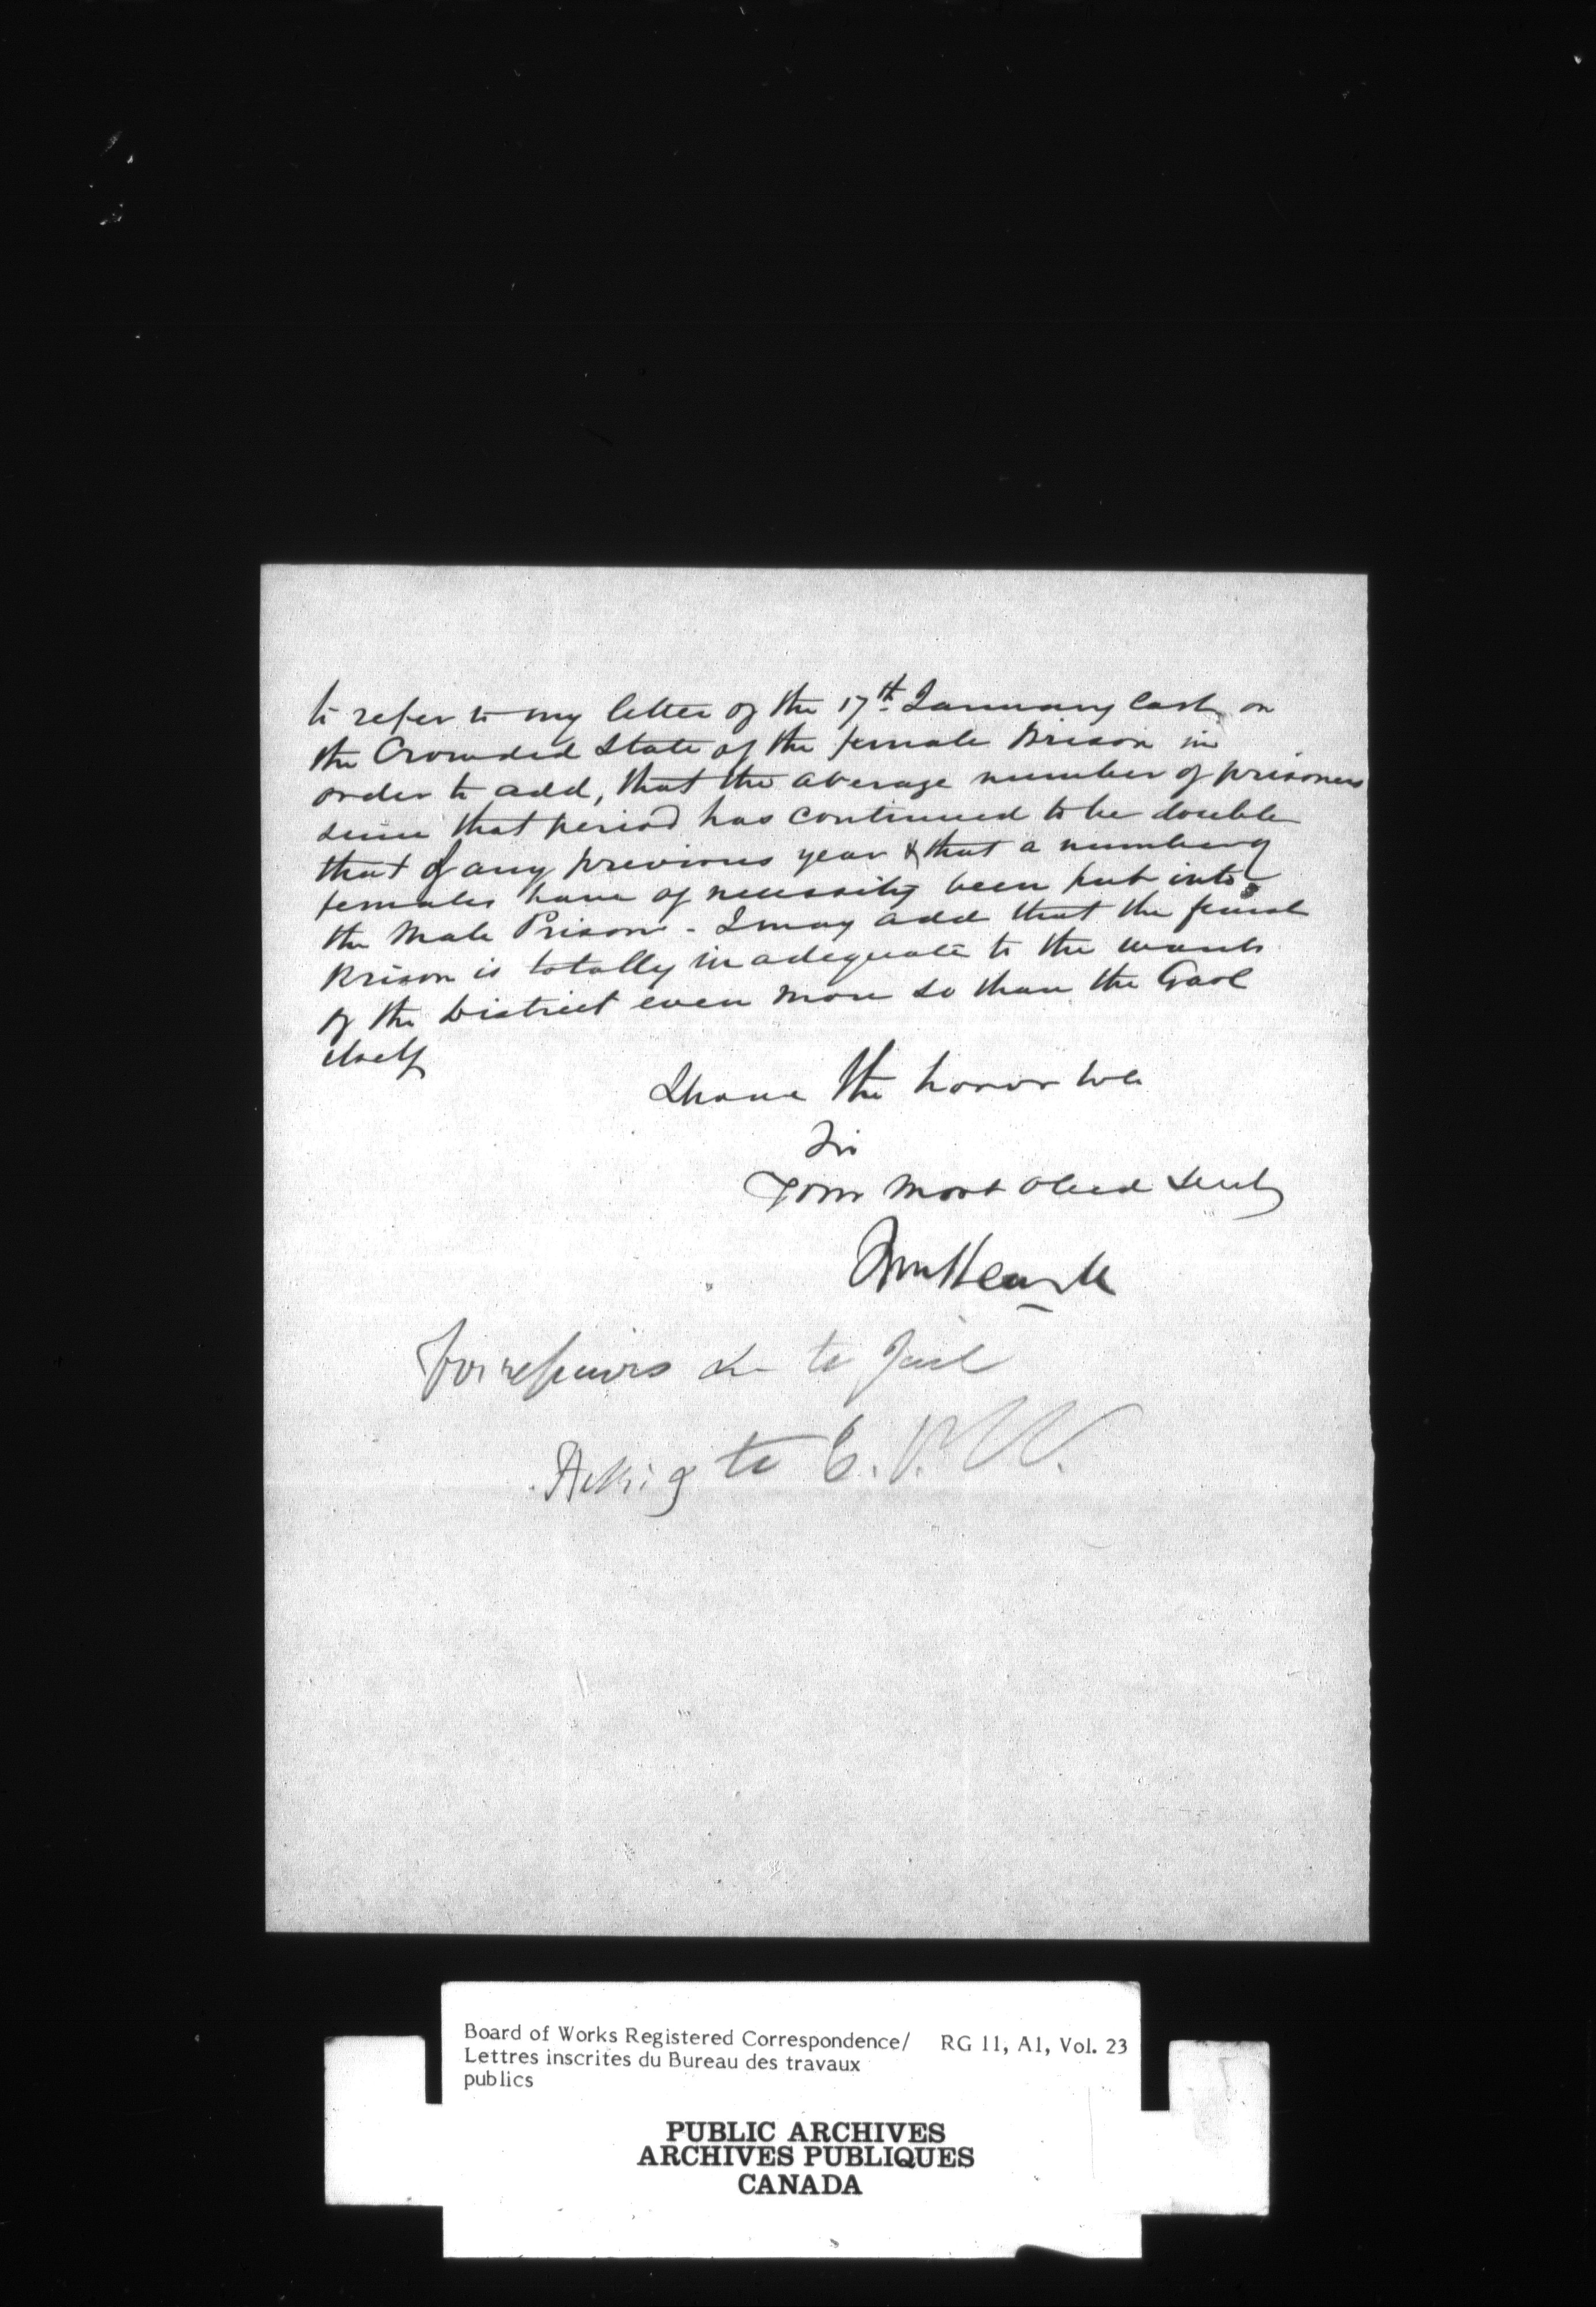 to refer to my letter of the 17th January last on
the Crowded State of the female Prison in
order to add, that the average number of prisoners
since that period has continued to be double
that of any previous year & that a number of
females have of necessity been put into
the Male Prison - I may add that the female
Prison is totally inadequate to the wants
of the District even more so than the Gaol
itself
I have the honor to be
Sir
Your most obed Servt
For repairs &c to Jail
to C. P. W.
Board of Works Registered Correspondence/ RG 11, A1, Vol. 23
Lettres inscrites du Bureau des travaux
publics
PUBLIC ARCHIVES
ARCHIVES PUBLIQUES
CANADA